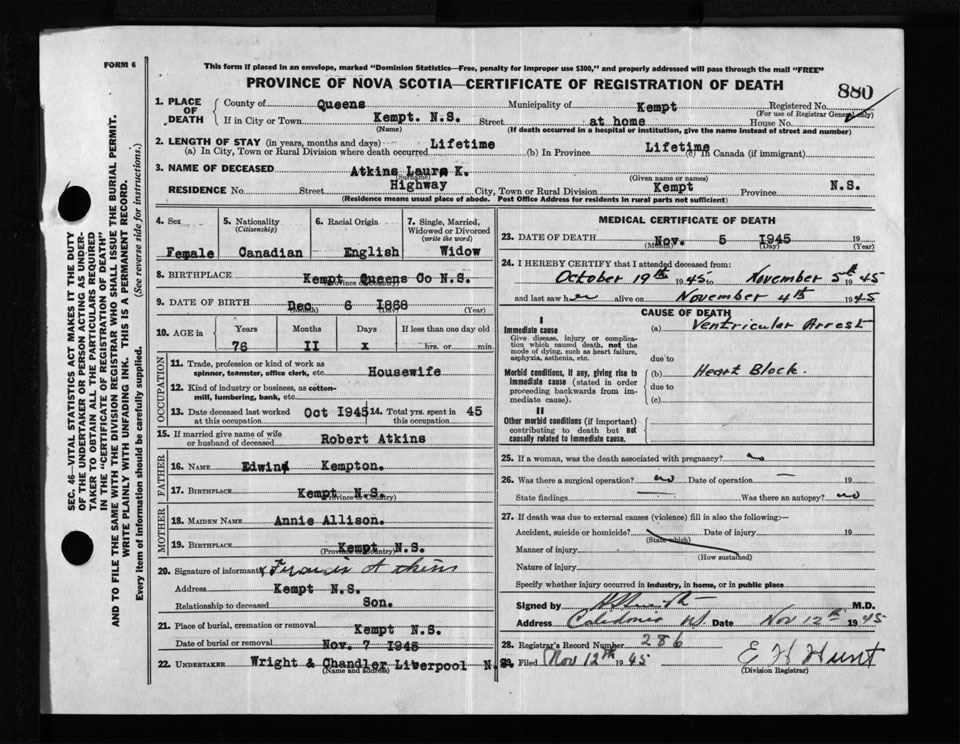 FORM 6
This form if placed in an envelope, marked "Dominion Statistics—Free, penalty for improper use $300," and properly addressed will pass through the mail "FREE"
PROVINCE OF NOVA SCOTIA—CERTIFICATE OF REGISTRATION OF DEATH
880
SEC. 46—VITAL STATISTICS ACT MAKES IT THE DUTY
OF THE UNDERTAKER OR PERSON ACTING AS UNDER-
TAKER TO OBTAIN ALL THE PARTICULARS REQUIRED
IN THE "CERTIFICATE OF REGISTRATION OF DEATH"
AND TO FILE THE SAME WITH THE DIVISION REGISTRAR WHO SHALL ISSUE THE BURIAL PERMIT.
WRITE PLAINLY WITH UNFADING INK. THIS IS A PERMANENT RECORD.
Every item of information should be carefully supplied. (See reverse side for instructions.)
1. PLACE OF DEATH
County of Queens Municipality of Kempt Registered No.
(For use of Registrar General only)
If in City or Town Kempt. N.S. Street at home House No.
(Name) (If death occurred in a hospital or institution, give the name instead of street and number)
2. LENGTH OF STAY (in years, months and days)
(a) In City, Town or Rural Division where death occurred Lifetime (b) In Province Lifetime (c) In Canada (if immigrant)
3. NAME OF DECEASED Atkins Laura K.
(Surname) (Given name or names)
RESIDENCE No. Street Highway City, Town or Rural Division Kempt Province N.S.
(Residence means usual place of abode. Post Office Address for residents in rural parts not sufficient)
4. Sex 5. Nationality (Citizenship) 6. Racial Origin 7. Single, Married, Widowed or Divorced (write the word)
Female Canadian English Widow
8. BIRTHPLACE Kempt Queens Co N.S.
(Province or Country)
9. DATE OF BIRTH Dec. 6 1868
(Month) (Day) (Year)
10. AGE in Years Months Days If less than one day old
76 II x hrs. or min.
OCCUPATION
11. Trade, profession or kind of work as
spinner, teamster, office clerk, etc. Housewife
12. Kind of industry or business, as cotton-
mill, lumbering, bank, etc.
13. Date deceased last worked at this occupation Oct 1945 14. Total yrs. spent in this occupation 45
15. If married give name of wife
or husband of deceased Robert Atkins
FATHER
16. NAME Edwin Kempton.
17. BIRTHPLACE Kempt N.S.
(Province or Country)
MOTHER
18. MAIDEN NAME Annie Allison.
19. BIRTHPLACE Kempt N.S.
(Province or Country)
20. Signature of informant x Francis Atkins
Address Kempt N.S.
Relationship to deceased Son.
21. Place of burial, cremation or removal Kempt N.S.
Date of burial or removal Nov. 7 1945
22. UNDERTAKER Wright & Chandler Liverpool N.S.
(Name and address)
MEDICAL CERTIFICATE OF DEATH
23. DATE OF DEATH Nov. 5 1945 19
(Month) (Day) (Year)
24. I HEREBY CERTIFY that I attended deceased from:
October 19th 1945 to November 5th 45
and last saw her alive on November 4th 1945
CAUSE OF DEATH
I
Immediate cause
Give disease, injury or complica-
tion which caused death, not the
mode of dying, such as heart failure,
asphyxia, asthenia, etc.
(a) Ventricular Arrest
due to
Morbid conditions, if any, giving rise to
immediate cause (stated in order
proceeding backwards from im-
mediate cause).
(b) Heart Block.
due to
(c)
II
Other morbid conditions (if important)
contributing to death but not
causally related to immediate cause.
25. If a woman, was the death associated with pregnancy?
26. Was there a surgical operation? no Date of operation 19
State findings Was there an autopsy? no
27. If death was due to external causes (violence) fill in also the following:—
Accident, suicide or homicide? Date of injury 19
(State which)
Manner of injury
(How sustained)
Nature of injury
Specify whether injury occurred in industry, in home, or in public place
Signed by M.D.
Address Caledonia NS Date Nov 12th 1945
28. Registrar's Record Number 286
29. Filed Nov 12th 1945 E H Hunt
(Division Registrar)